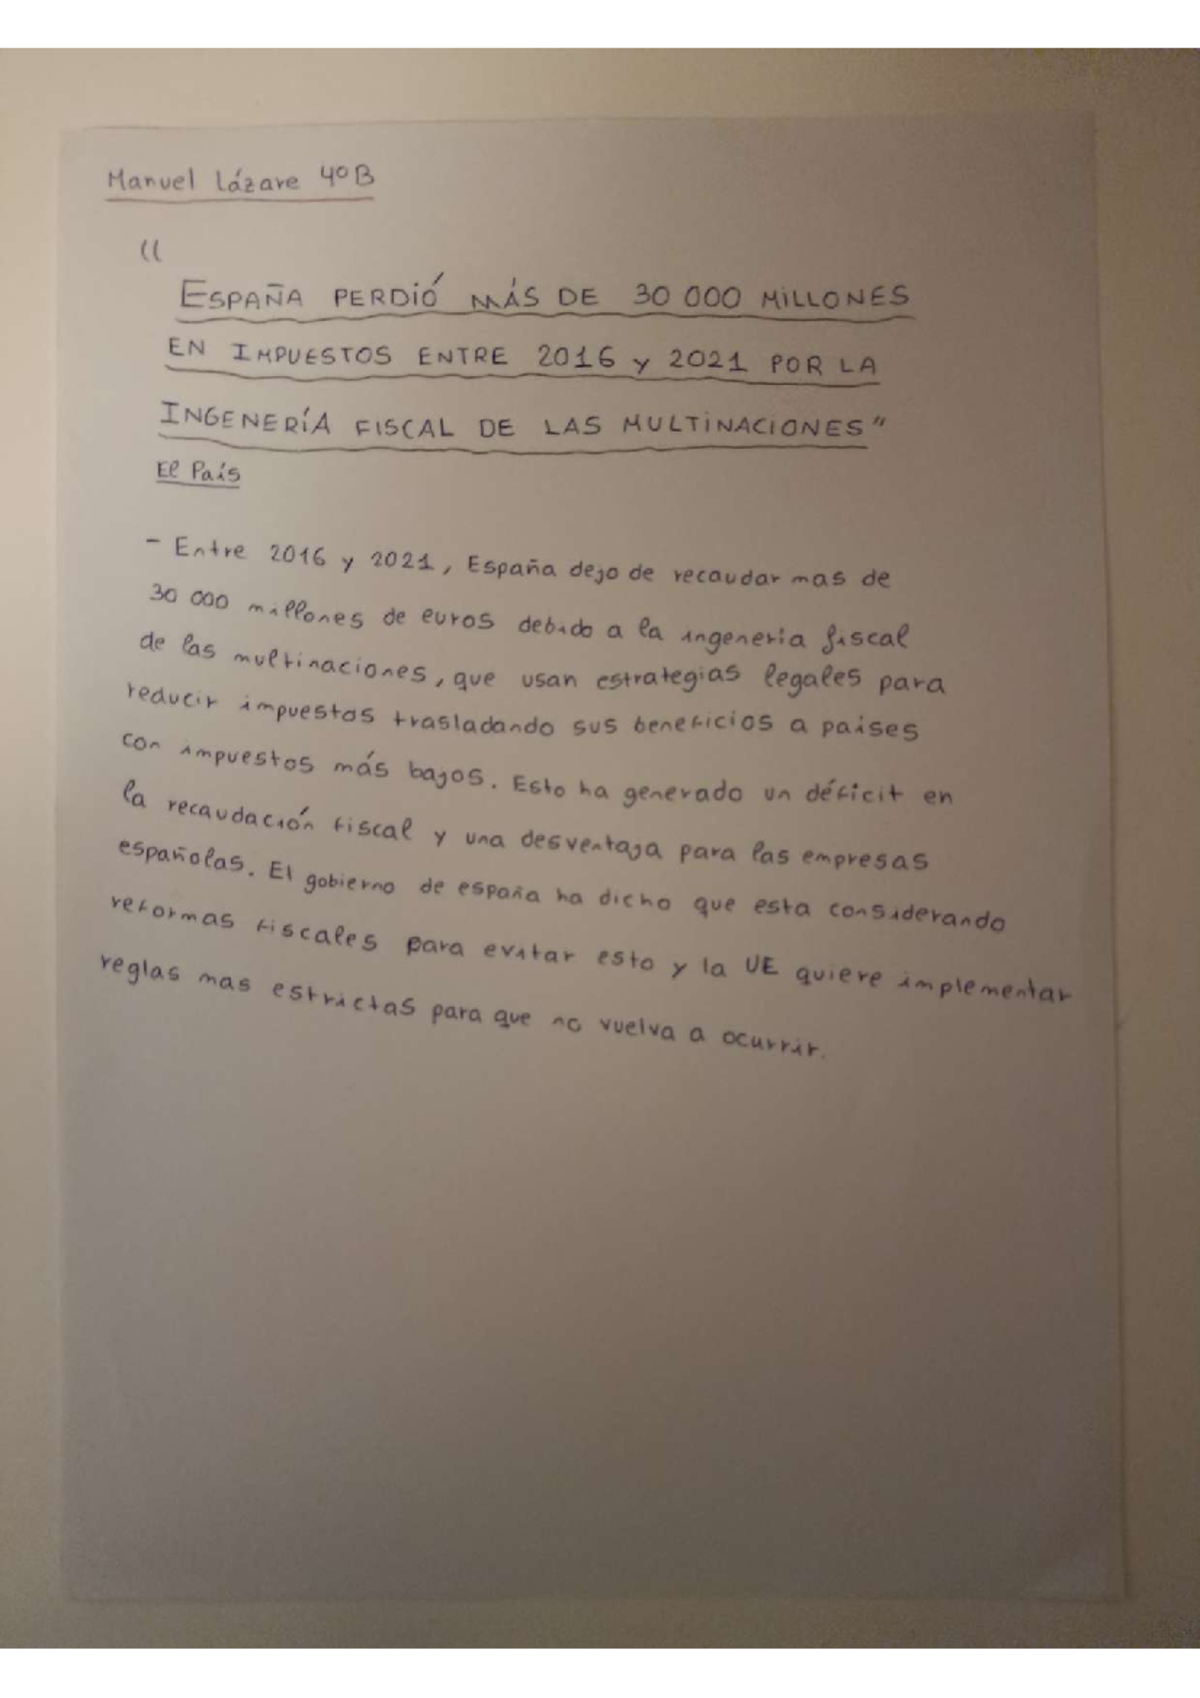 Manuel Lázare 4ºB
"
ESPAÑA PERDIÓ MÁS DE 30 000 MILLONES
EN IMPUESTOS ENTRE 2016 y 2021 POR LA
INGENERÍA FISCAL DE LAS MULTINACIONES"
El País
- Entre 2016 y 2021, España dejo de recaudar mas de
30 000 millones de euros debido a la ingeneria fiscal
de las multinaciones, que usan estrategias legales para
reducir impuestos trasladando sus beneficios a paises
con impuestos más bajos. Esto ha generado un déficit en
la recaudación fiscal y una desventaja para las empresas
españolas. El gobierno de españa ha dicho que esta considerando
reformas fiscales para evitar esto y la UE quiere implementar
reglas mas estrictas para que no vuelva a ocurrir.